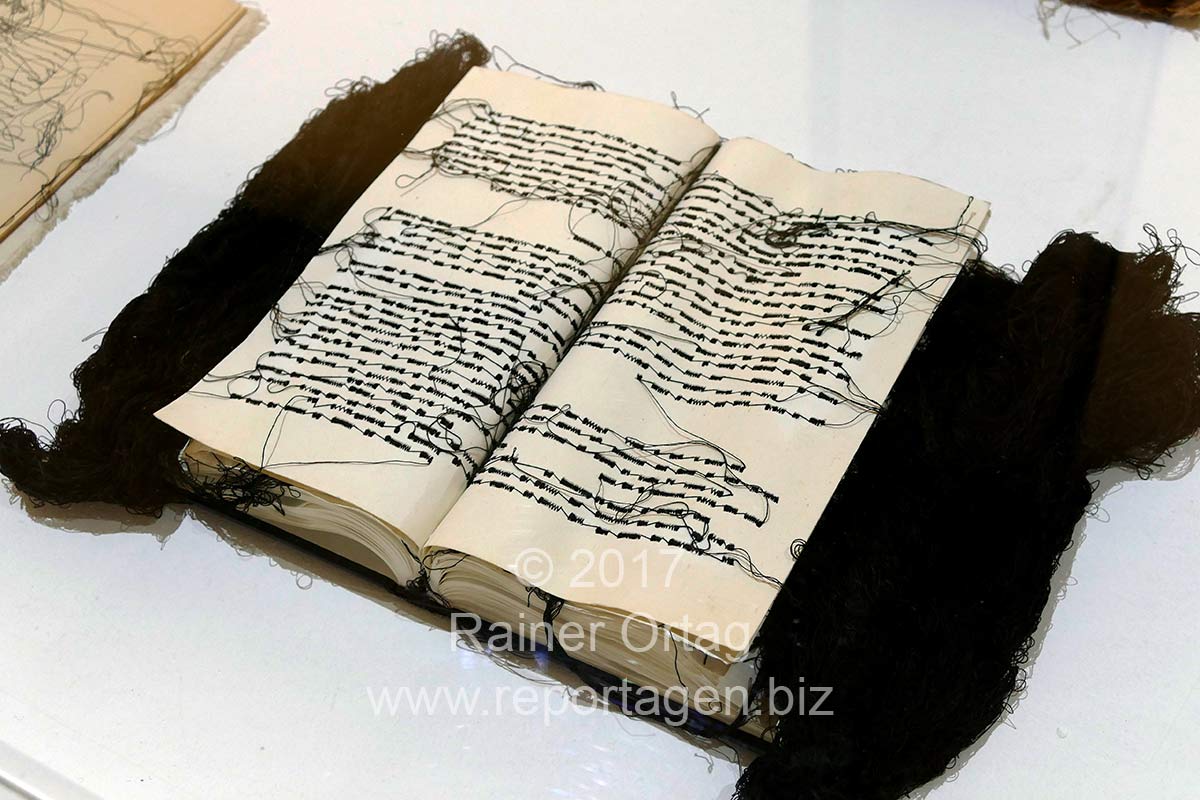 © 2017
Rainer Ortag
www.reportagen.biz